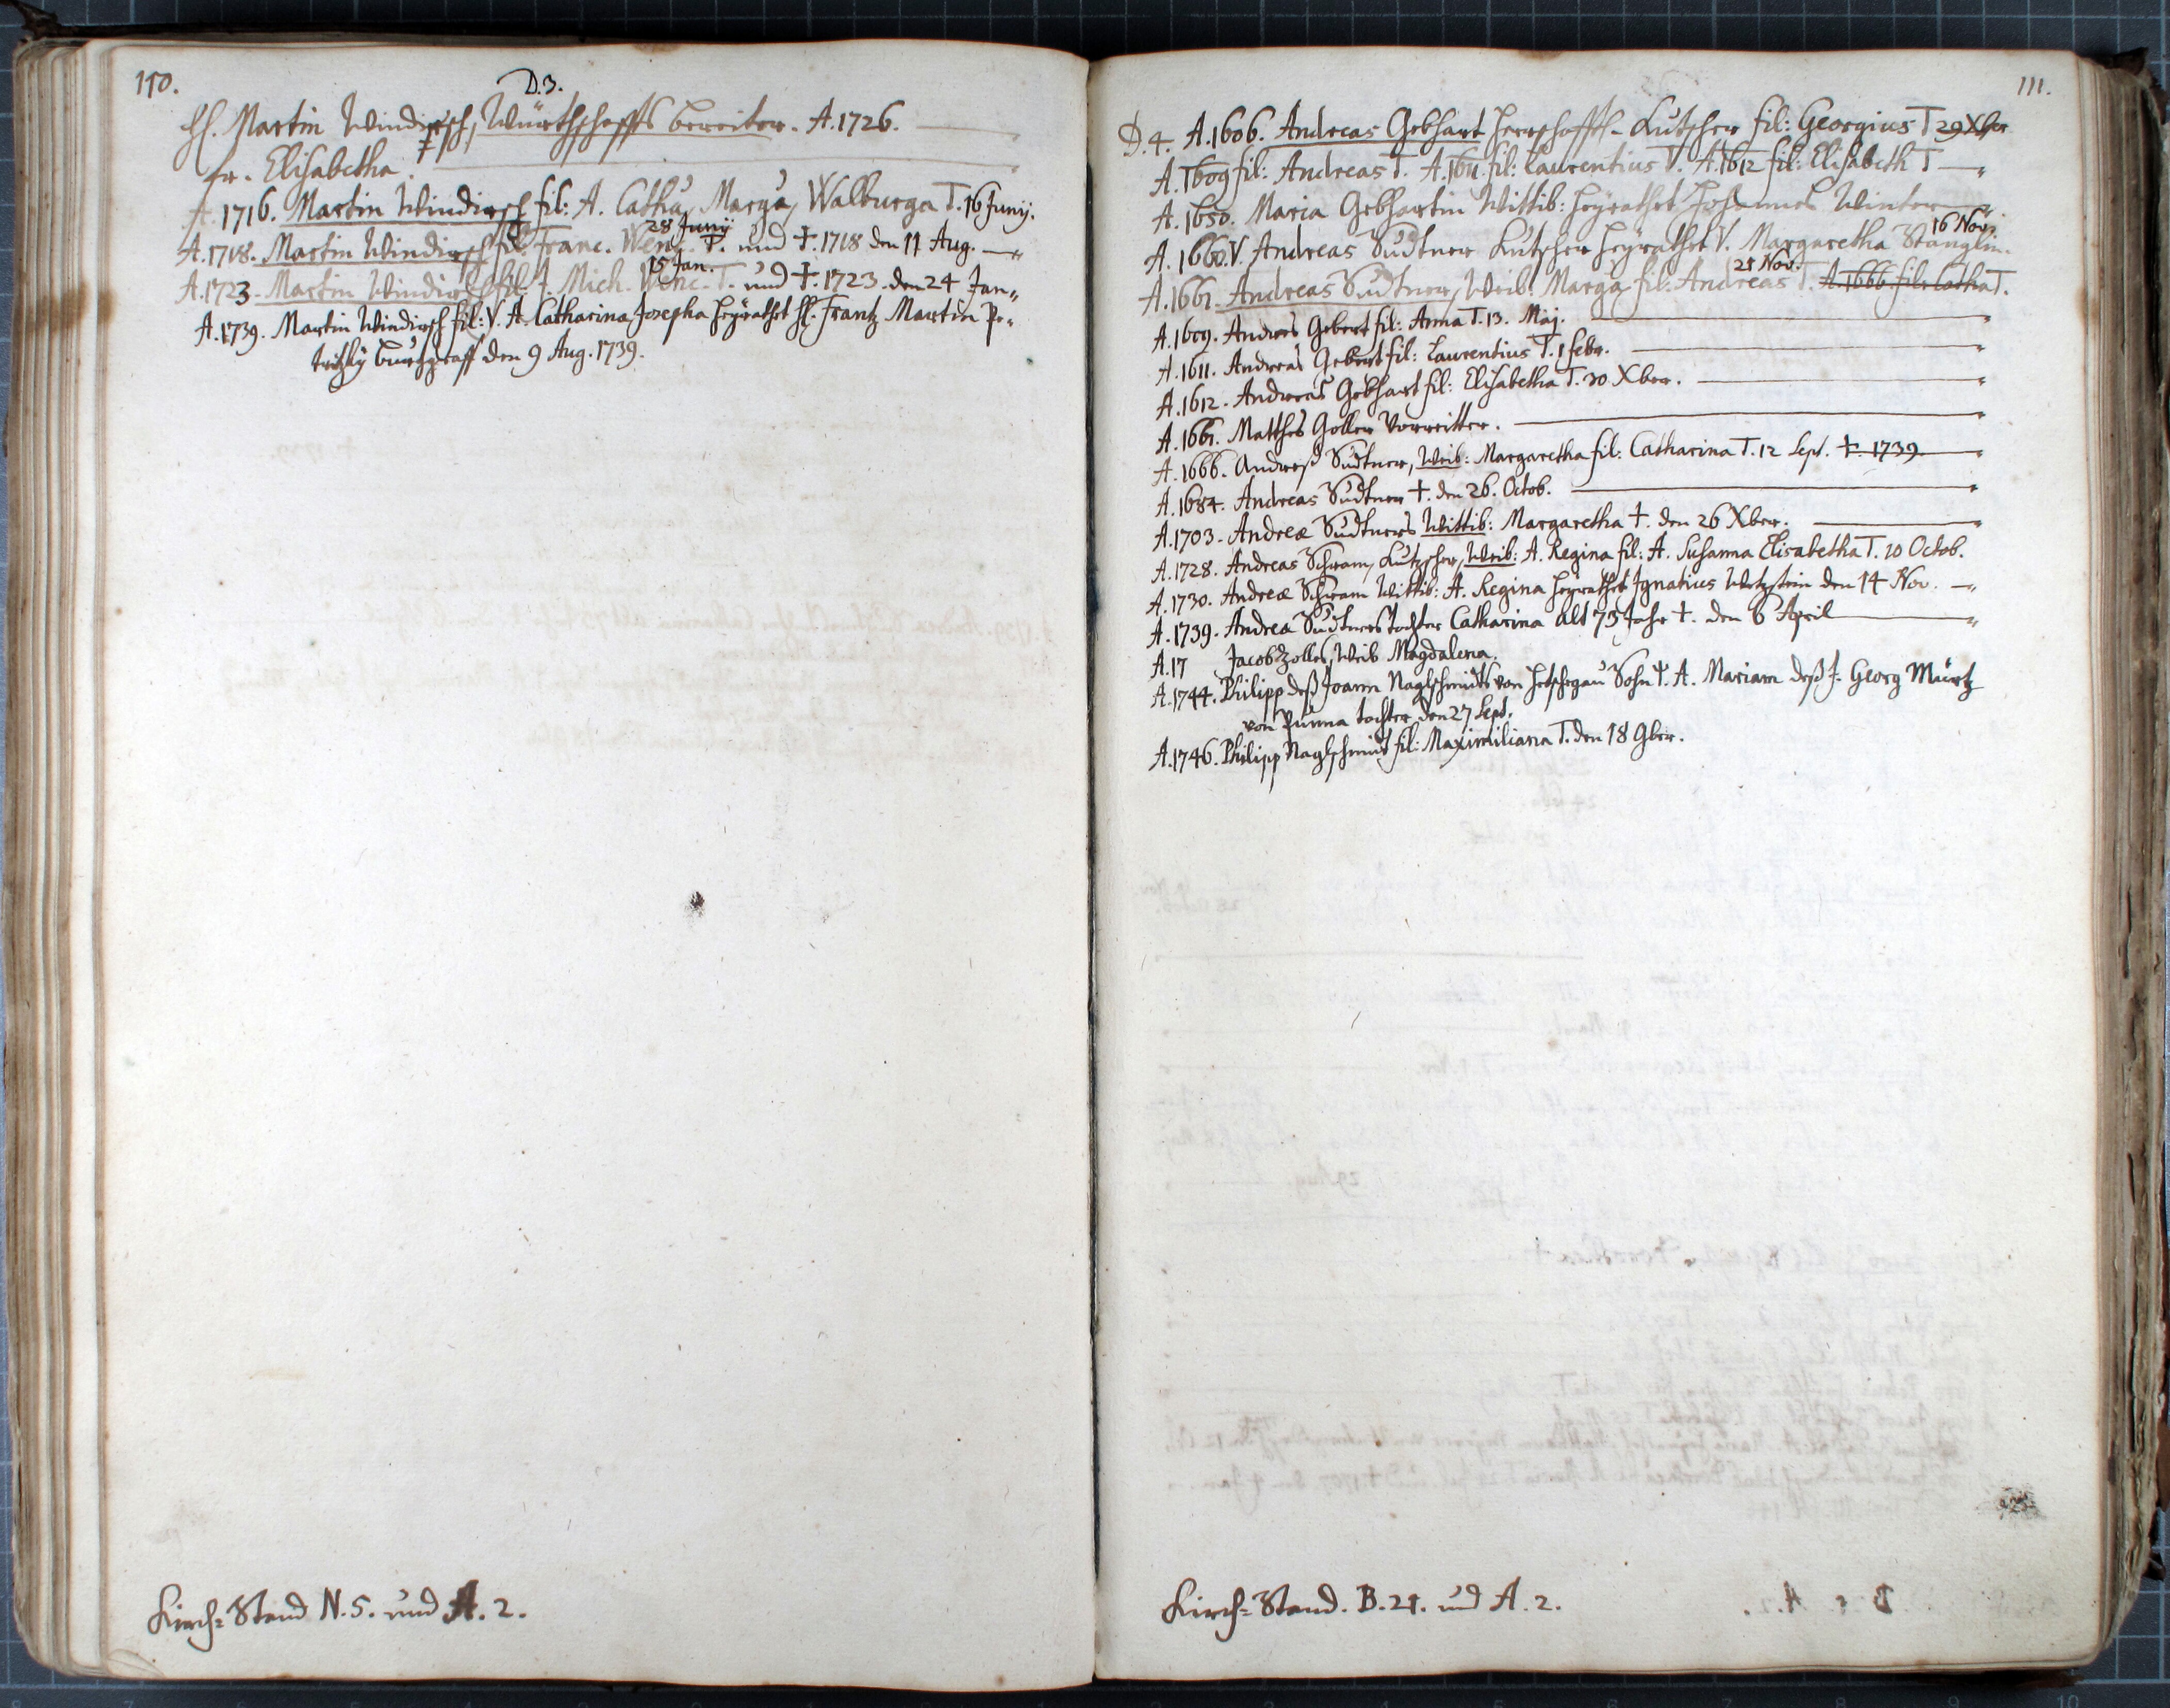 110.
D.3.
H. Martin Windirsch, Würthschaffts bereiter. A. 1726.
fr. Elisabetha.
A. 1716. Martin Windirsch fil: A. Catha, Marga, Walburga T. 16 Junij.
28 Junij
A. 1718. Martin Windirsch fil: Franc. Wenc. T. und †. 1718 den 11 Aug.
15 Jan.
A. 1723. Martin Windirsch fil: J. Mich. Wenc. T. und †. 1723. den 24 Jan.
A. 1739. Martin Windirsch fil: V. A. Catharina Josepha heÿrathet H. Frantz Martin Pe-
tritzkÿ burggraff den 9 Aug. 1739.
Kirch-Stand N. 5. und A. 2.
111.
D. 4. A. 1606. Andreas Gebhart herrschafftl. Kutscher fil: Georgius T 29 Xber
A. 1609 fil: Andreas T. A. 1611. fil: Laurentius T. A. 1612 fil: Elisabeth T
A. 1650. Maria Gebhartin Wittib: heÿrathet Johannes Winter
16 Nov.
A. 1660. V. Andreas Sudtner Kutscher heÿrathet V. Margaretha Stanglin.
21 Nov.
A. 1661. Andreas Sudtner, Weib: Marga fil: Andreas T. A. 1666 fil: Catha T.
A. 1609. Andres Gebert fil: Anna T. 13. Maj.
A. 1611. Andreas Gebert fil: Laurentius T. 1 febr.
A. 1612. Andreas Gebhart fil: Elisabetha T. 30 Xber.
A. 1661. Matthes Goller Vorreitter.
A. 1666. Andreß Sudtner, Weib: Margaretha fil: Catharina T. 12 Sept. †. 1739.
A. 1684. Andreas Sudtner †. den 26. Octob.
A. 1703. Andreæ Sudtners Wittib: Margaretha †. den 26 Xber.
A. 1728. Andreas Schram, Kutscher, Weib: A. Regina fil: A. Susanna Elisabetha T. 10 Octob.
A. 1730. Andreæ Schram Wittib: A. Regina heÿrathet Ignatius Wetzstein den 14 Nov.
A. 1739. Andrea Sudtners tochter Catharina alt 73 Jahr †. den 6 April
A. 17 Jacob Zoller, Weib Magdalena.
A. 1744. Philipp deß Joann Naglschmidts von Sohn A. Mariam deß Georg Mürtz
von tochter den 27 Sept.
A. 1746. Philipp Naglschmidt fil: Maximiliana T. den 18 9ber.
Kirch-Stand. B. 21. ud A. 2.